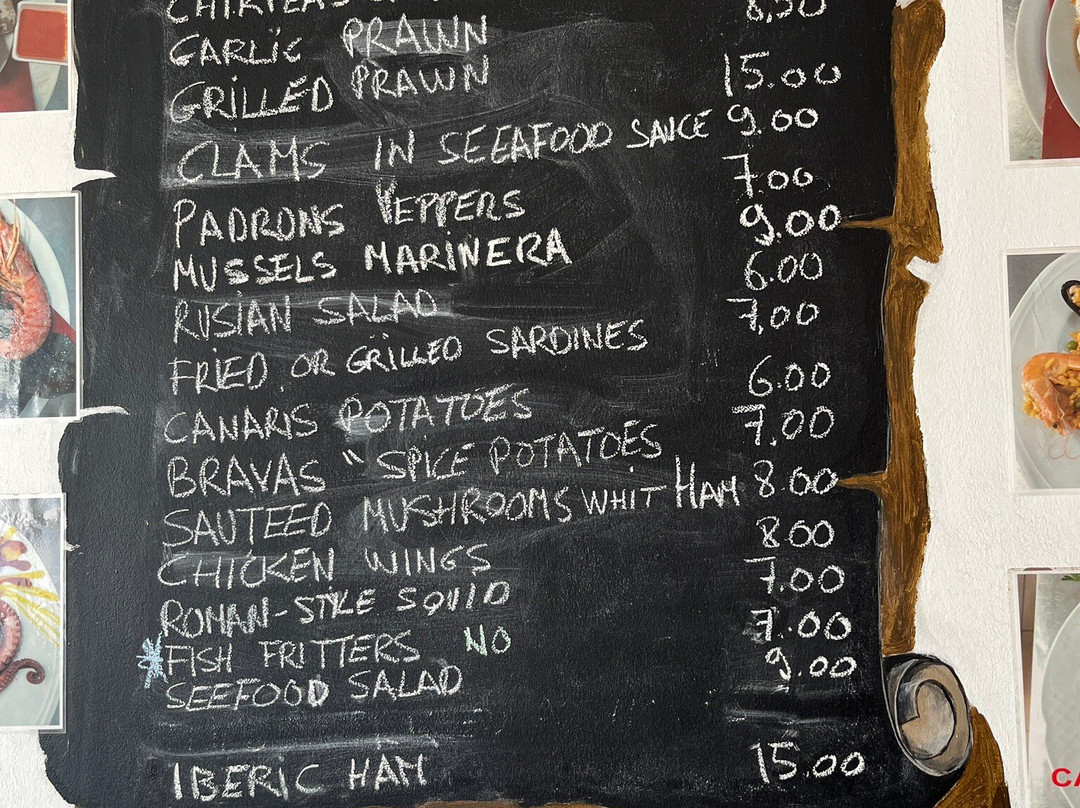 GARLIC PRAWN 8,50
GRILLED PRAWN 15.00
CLAMS IN SEEAFOOD SAUCE 9.00
PADRONS PEPPERS 7.00
MUSSELS MARINERA 9.00
RUSIAN SALAD 6.00
FRIED OR GRILLED SARDINES 7,00
CANARIS POTATOES 6.00
BRAVAS " SPICE POTATOES 7,00
SAUTEED MUSHROOMS WHIT HAM 8.00
CHICKEN WINGS 8.00
ROMAN-STYLE SQUID 7.00
*FISH FRITTERS NO 7.00
SEEFOOD SALAD 9.00
IBERIC HAM 15.00
CA